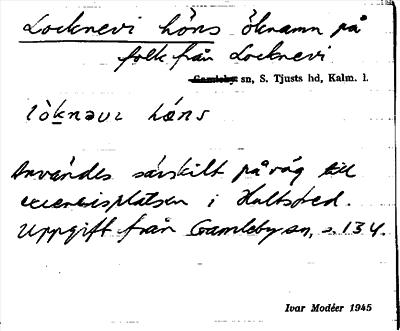 Locknevi höns öknamn på
folk från Locknevi
Gamleby sn, S. Tjusts hd, Kalm. l.
lòknəvɩ høns
Användes särskilt på väg till
exercisplatsen i Hultsfred.
Uppgift från Gamleby sn, s. 134.
Ivar Modéer 1945